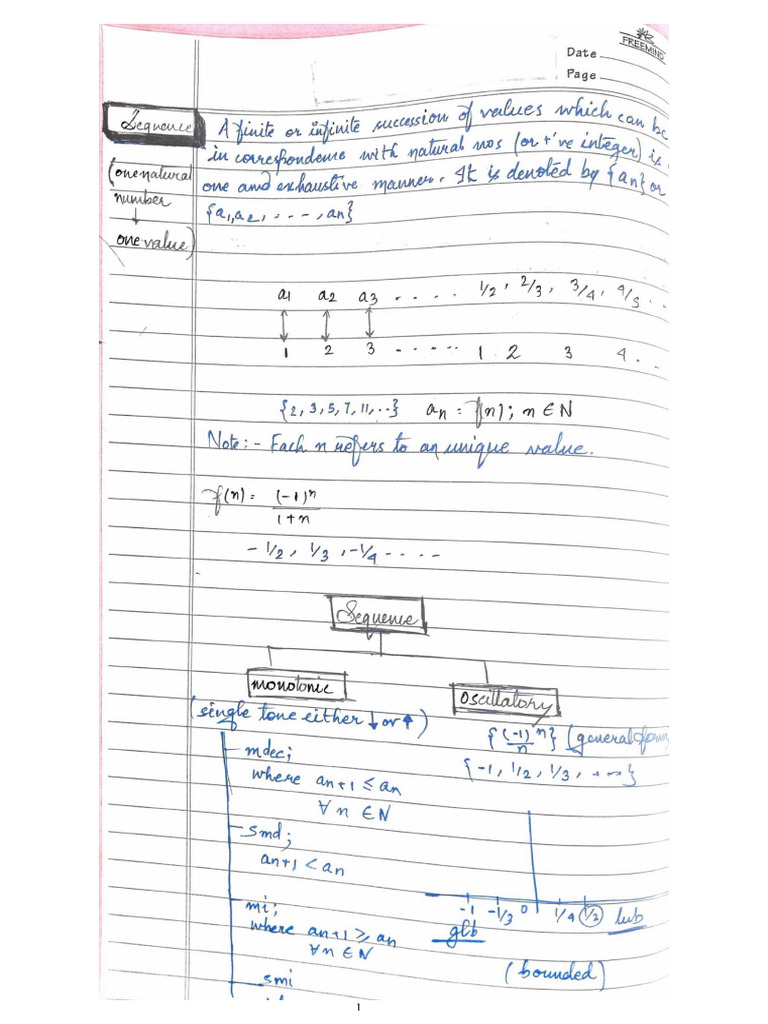 FREEMIND
Date
Page
Sequence
A finite or infinite succession of values which can be
in correspondence with natural nos (or +'ve integer) is
one and exhaustive manner. It is denoted by {an} or
{a1, a2, ...., an}
(one natural
number
↓
one value)
a1 a2 a3 ..... 1/2, 2/3, 3/4, 4/5 ..
1 2 3 ..... 1 2 3 4 ..
{2, 3, 5, 7, 11, ..} an = f(n); n ∈ N
Note:- Each n refers to an unique value.
f(n) = (-1)^n / 1+n
- 1/2, 1/3, -1/4 ....
Sequence
monotonic
Oscillatory
(single tone either ↓ or ↑)
{(-1)^n / n} (general form
{-1, 1/2, 1/3, + ∞}
mdec;
where an+1 ≤ an
∀ n ∈ N
smd;
an+1 < an
mi;
where an+1 ≥ an
∀ n ∈ N
smi
-1 -1/3 0 1/4 1/2 lub
glb
(bounded)
1